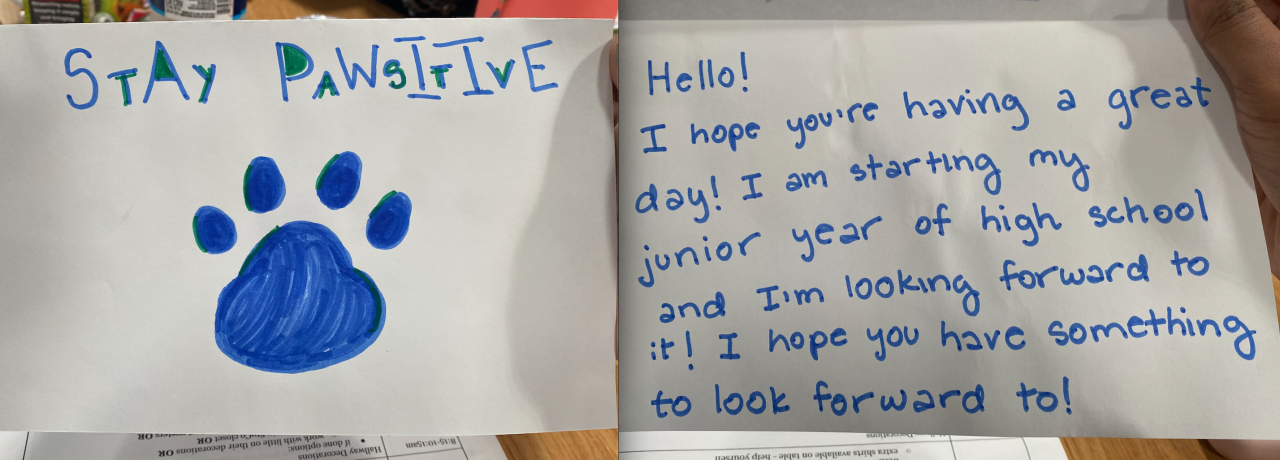 STAY PAWSITIVE
Hello!
I hope you're having a great
day! I am starting my
junior year of high school
and I'm looking forward to
it! I hope you have something
to look forward to!
8:15-10:15am
Hallway Decorations
if done options:
work with little on their decorations OR
extra shirts available on table - help yourself